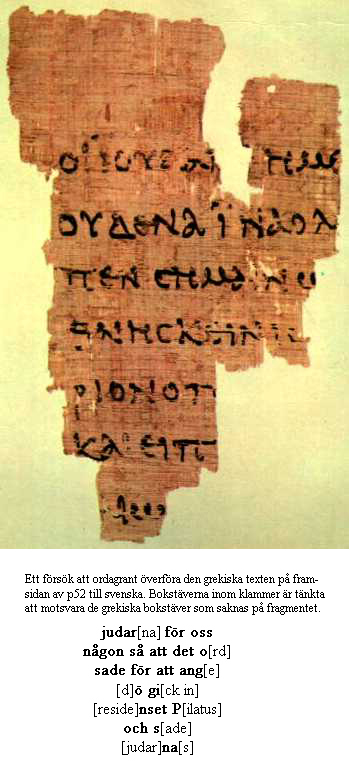 ΟΙ ΙΟΥΔΑΙ ΗΜΕ
ΟΥΔΕΝΑ ΪΝΑ Ο Λ
ΠΕΝ ϹΗΜΑΙΝΩ
ΘΝΗϹΚΕΙΝ ΙϹ
ΡΙΟΝ Ο Π
ΚΑΙ ΕΙΠ
Ett försök att ordagrant överföra den grekiska texten på fram-
sidan av p52 till svenska. Bokstäverna inom klammer är tänkta
att motsvara de grekiska bokstäver som saknas på fragmentet.
judar[na] för oss
någon så att det o[rd]
sade för att ang[e]
[d]ö gi[ck in]
[reside]nset P[ilatus]
och s[ade]
[judar]na[s]